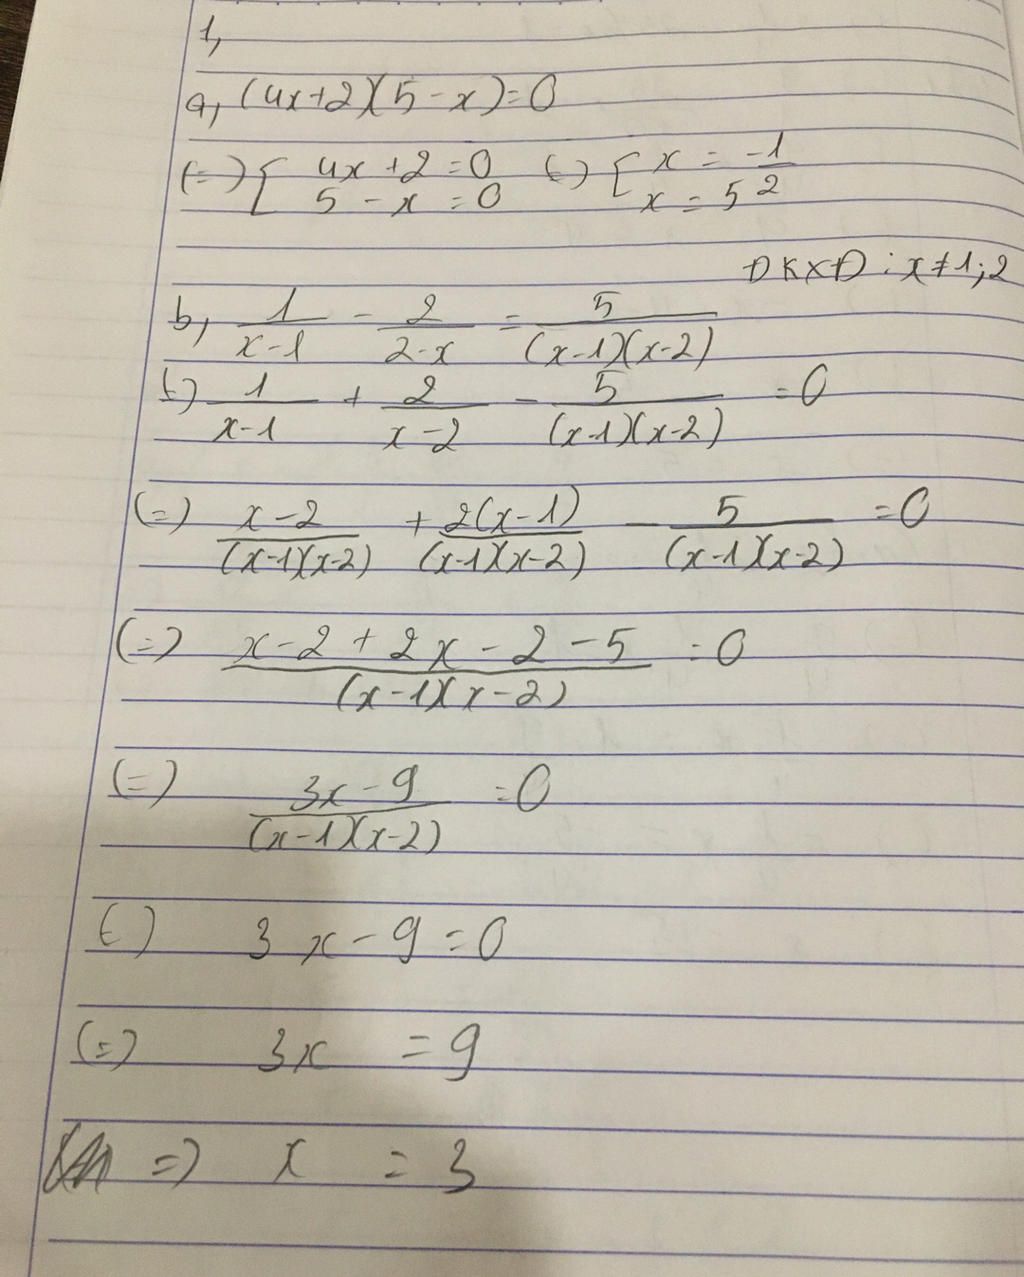 1,
a, (4x+2)(5-x)=0
(=) [ 4x+2=0 (=) [ x = -1/2
5-x=0 x = 5
ĐKXĐ : x≠1;2
b, 1/(x-1) - 2/(2-x) = 5/((x-1)(x-2))
(=) 1/(x-1) + 2/(x-2) - 5/((x-1)(x-2)) =0
(=) (x-2)/((x-1)(x-2)) + 2(x-1)/((x-1)(x-2)) - 5/((x-1)(x-2)) =0
(=) (x-2+2x-2-5)/((x-1)(x-2)) =0
(=) (3x-9)/((x-1)(x-2)) =0
(=) 3x-9=0
(=) 3x =9
=) x = 3